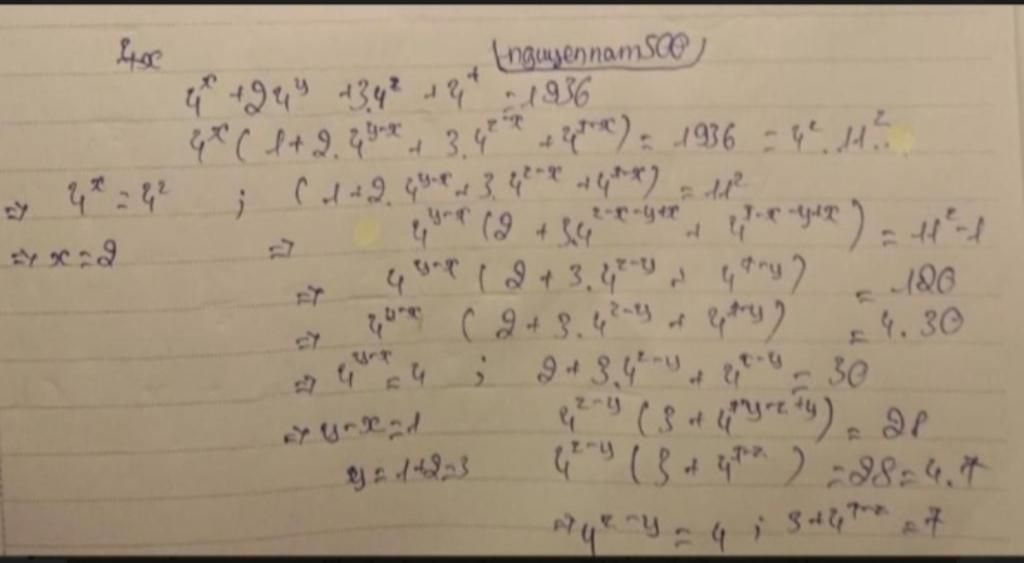 4x
(nguyennam500)
4^x + 2 4^y + 3.4^z + 4^t = 1936
4^x ( 1 + 2. 4^{y-x} + 3. 4^{z-x} + 4^{t-x} ) = 1936 = 4^2 . 11^2
=> 4^x = 4^2 ; ( 1 + 2. 4^{y-x} + 3. 4^{z-x} + 4^{t-x} ) = 11^2
=> x = 2 => 4^{y-x} ( 2 + 3.4^{z-x-y+x} + 4^{t-x-y+x} ) = 11^2 - 1
=> 4^{y-x} ( 2 + 3. 4^{z-y} + 4^{t-y} ) = 120
=> 4^{y-x} ( 2 + 3. 4^{z-y} + 4^{t-y} ) = 4. 30
=> 4^{y-x} = 4 ; 2 + 3. 4^{z-y} + 4^{t-y} = 30
=> y-x = 1 4^{z-y} ( 3 + 4^{t-y-z+y} ) = 28
y = 1+2=3 4^{z-y} ( 3 + 4^{t-z} ) = 28 = 4. 7
=> 4^{z-y} = 4 ; 3 + 4^{t-z} = 7